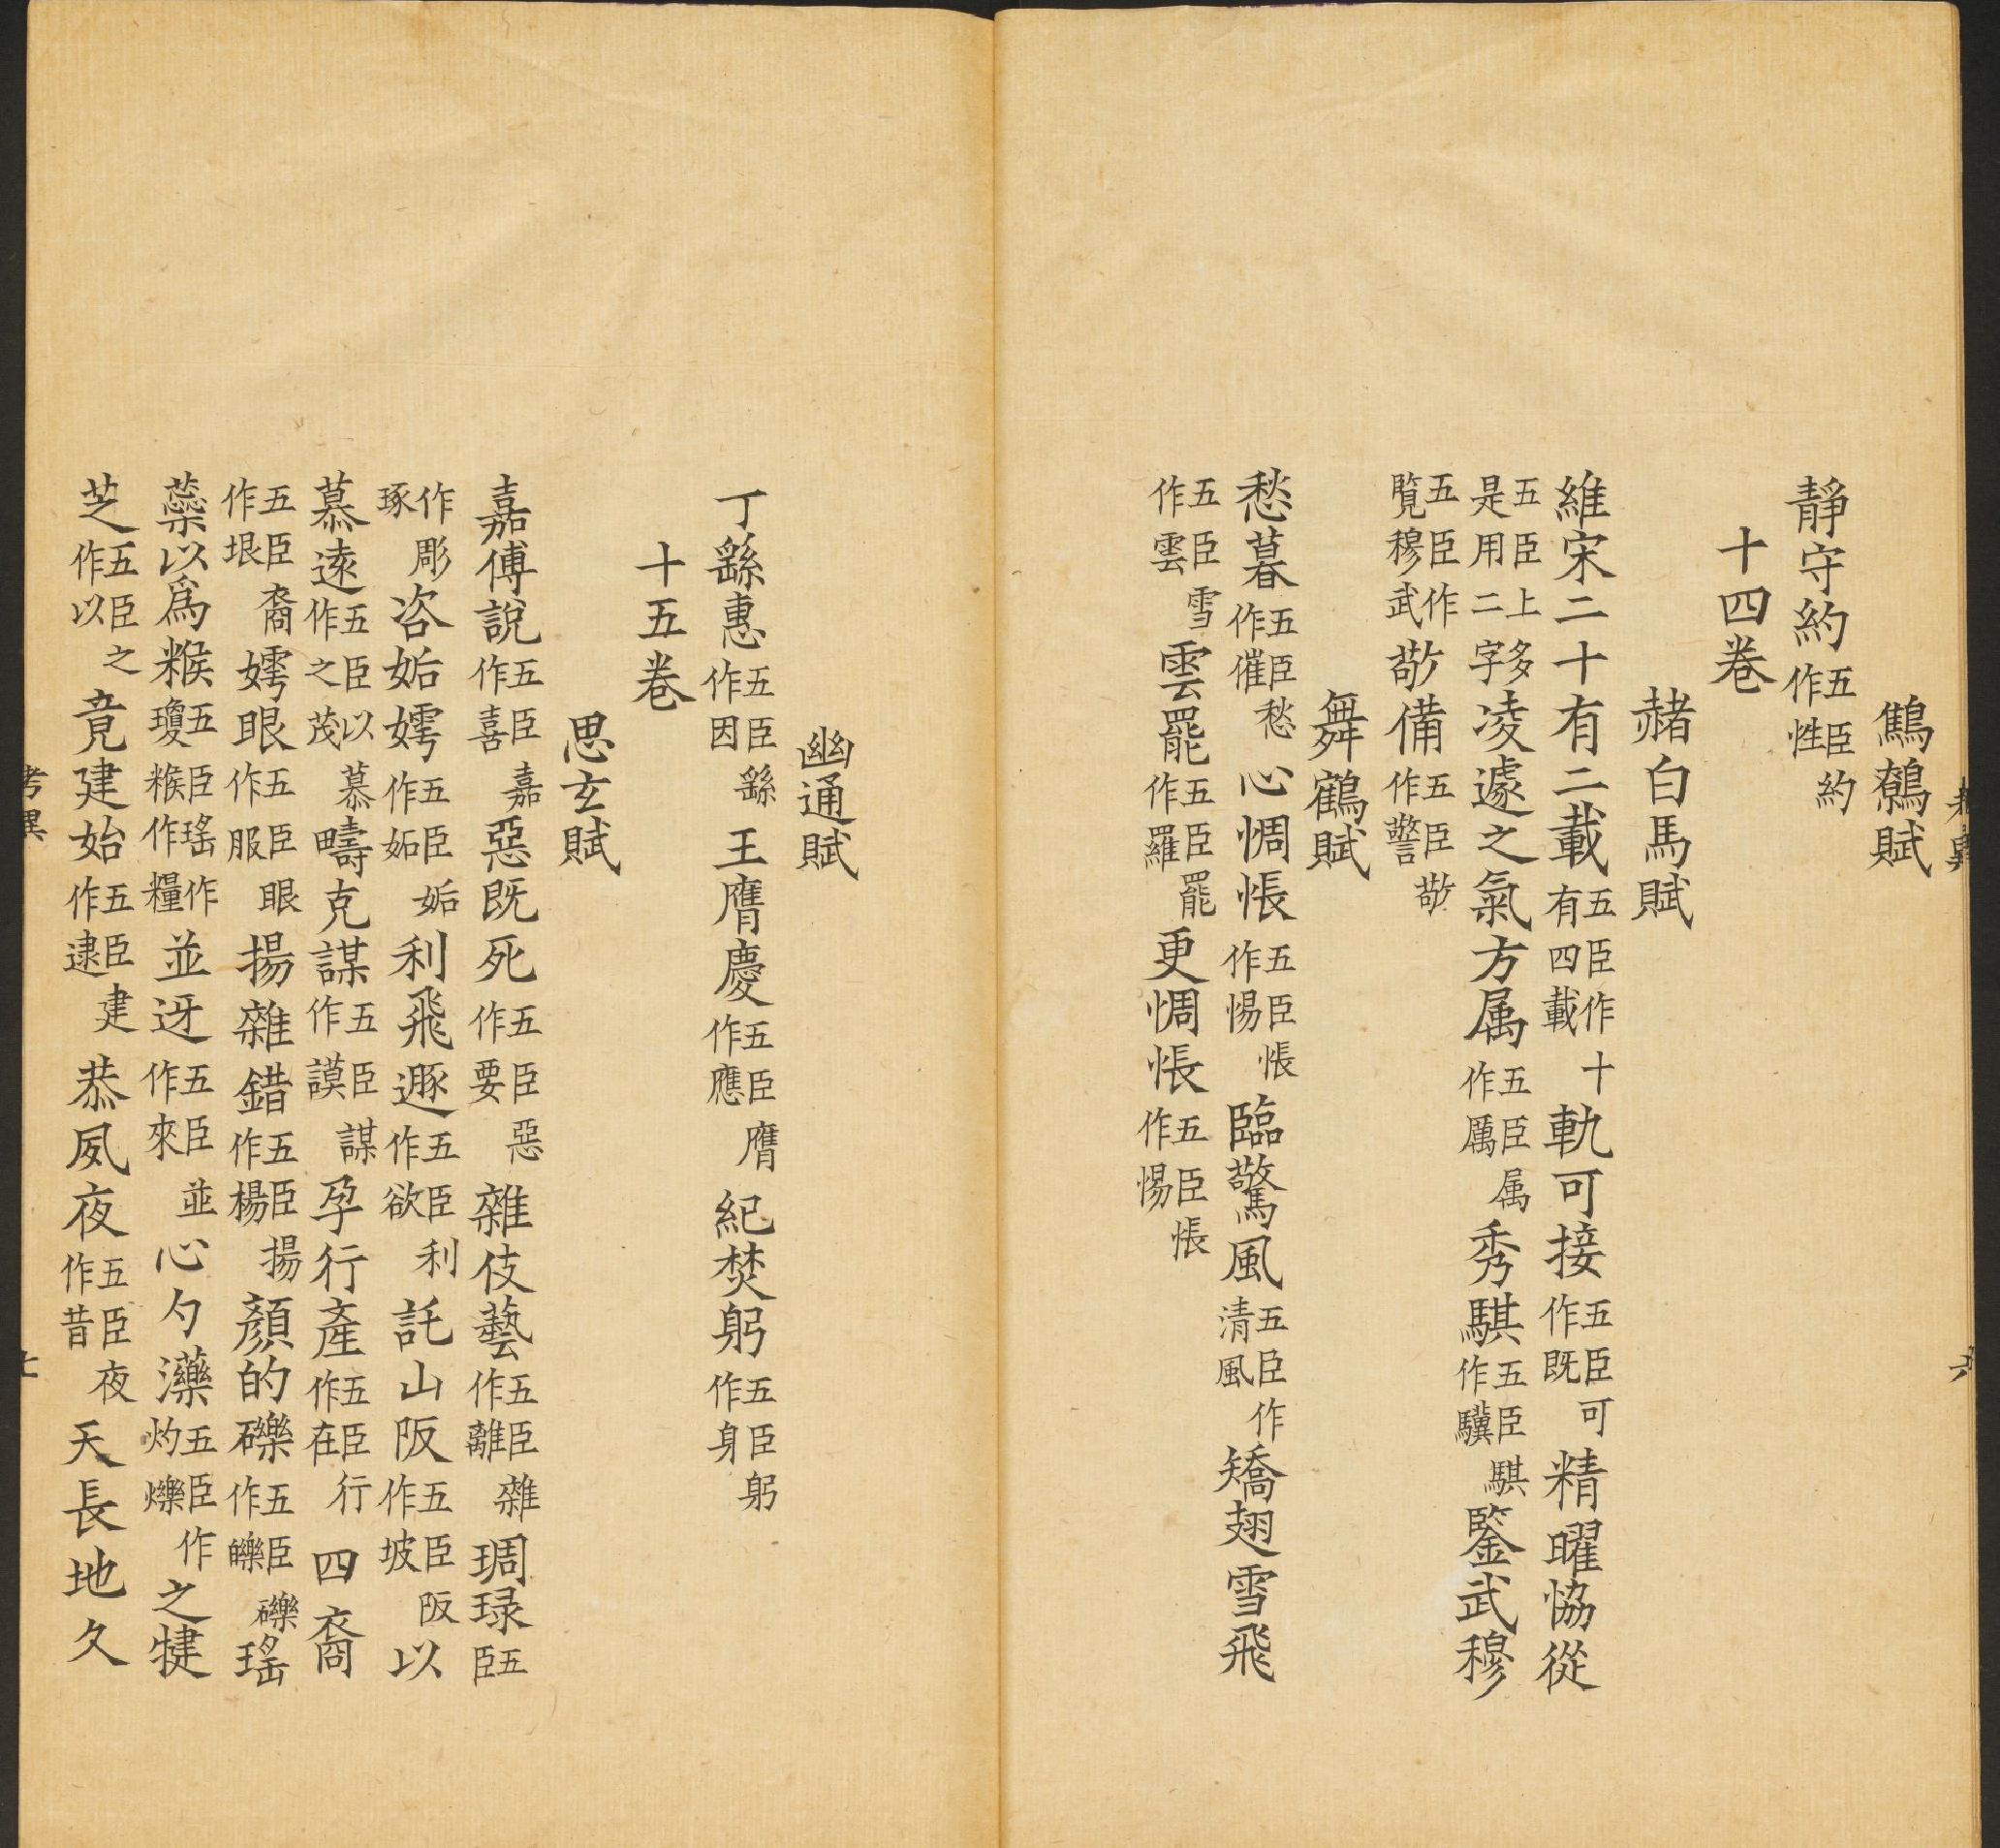 鷦鷯賦
靜守約五臣約作性
十四卷
赭白馬賦
維宋二十有二載五臣作十有四載軌可接五臣可作既精曜恊從
五臣上多是用二字凌遽之氣方属五臣属作厲秀騏五臣騏作驥鑒武穆
五臣作覧穆武敬備五臣敬作警
舞鶴賦
愁暮五臣愁作催心惆悵五臣悵作惕臨驚風五臣作清風矯翅雪飛
五臣雪作雲雲罷五臣罷作羅更惆悵五臣悵作惕
幽通賦
丁繇惠五臣繇作因王膺慶五臣膺作應紀焚躬五臣躬作身
十五卷
思玄賦
嘉傅說五臣嘉作喜惡既死五臣惡作要雜伎藝五臣雜作離琱琭五臣
作彫琢咨姤嫮五臣姤作妬利飛遯五臣利作欲託山阪五臣阪作坡以
慕遠五臣以慕作之茂疇克謀五臣謀作謨孕行產五臣行作在四裔
五臣裔作垠嫮眼五臣眼作服揚雜錯五臣揚作楊顏的礫五臣礫作皪瑤
蘂以爲糇五臣瑤作瓊糇作糧並迓五臣並作來心勺濼五臣作灼爍之揵
芝五臣之作以竟建始五臣建作逮恭夙夜五臣夜作昔天長地久